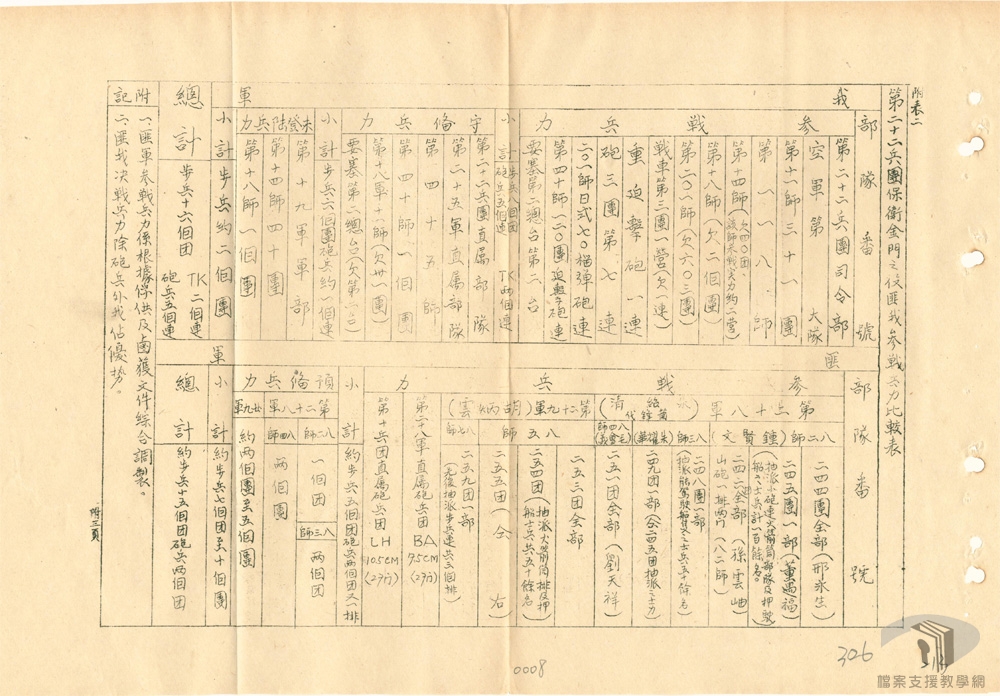 附表二
第二十二兵團保衛金門之役匪我參戰兵力比較表
我軍
部隊番號
參戰兵力
第二十二兵團司令部
空軍第 大隊
第十一師三十一團
第一一八師
第十四師(欠四〇團
該師參戰實力約一營)
第十八師(欠二個團)
第二〇一師(欠六〇三團)
戰車第三團一營(欠一連)
重迫擊砲一連
砲三團第七連
二〇一師日式七〇榴彈砲連
第四十師一二〇團迫擊砲連
要塞第二總台第二台
小計
步兵八個團
砲兵五個連
TK兩個連
守備兵力
第二十二兵團直屬部隊
第二十五軍直屬部隊
第四十五師
第四十師一個團
第十八軍十一師(欠卅一團)
要塞第二總台(欠第二台)
小計
步兵六個團砲兵約一個連
未登陸兵力
第十九軍軍部
第十四師四十團
第十八師一個團
小計
步兵約二個團
總計
步兵十六個團
TK二個連
砲兵五個連
匪軍
部隊番號
參戰兵力
第二十八軍
八二師(鍾賢文)
二四四團全部(邢永生)
二四五團一部(董萬福)
二四六全部(孫雲岫)
山砲一排兩門(八二師)
二四八團一部
二五一团全部(劉天祥)
第二十九軍(胡炳雲)
八五師
二五三团全部
二五四团(抽派火箭筒排及押船士兵共五十餘名)
二五五团(仝右)
二五九团一部
第二十八軍直屬砲兵团
BA
7.5CM
(27門)
第十兵团直属砲兵团
LH
10.5CM
(27門)
小計
約步兵五個团砲兵兩個团又一排
預備兵力
第二十八軍
八二師
一個团
八三師
兩個团
八四師
兩個團
廿九軍
約兩個團至五個團
小計
約步兵七個团至十個團
總計
約步兵十五個团砲兵兩個团
附記
一、匪軍參戰兵力係根據俘供及鹵獲文件綜合調製。
二、匪我決戰兵力除砲兵外我佔優勢。
附三頁
0008
306
檔案支援教學網